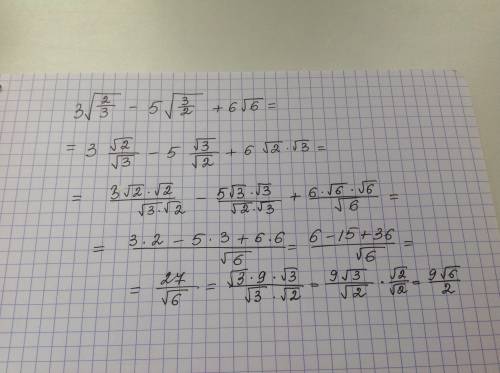 3√(2/3) - 5√(3/2) + 6√6 =
= 3 √2/√3 - 5 √3/√2 + 6 √2·√3 =
= (3√2·√2)/(√3·√2) - (5√3·√3)/(√2·√3) + (6·√6·√6)/√6 =
= (3·2 - 5·3 + 6·6)/√6 = (6-15+36)/√6 =
= 27/√6 = (√3·9·√3)/(√3·√2) = 9√3/√2 · √2/√2 = 9√6/2